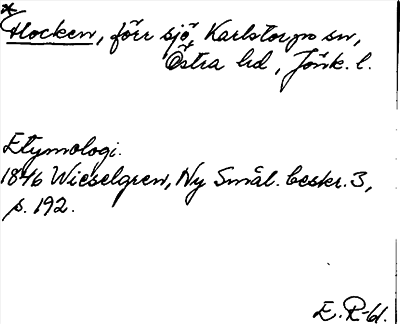 *
Flocken, förr sjö, Karlstorps sn,
Östra hd, Jönk. l.
Etymologi.
1846 Wieselgren, Ny Smål. beskr. 3,
s. 192.
E. R-bl.